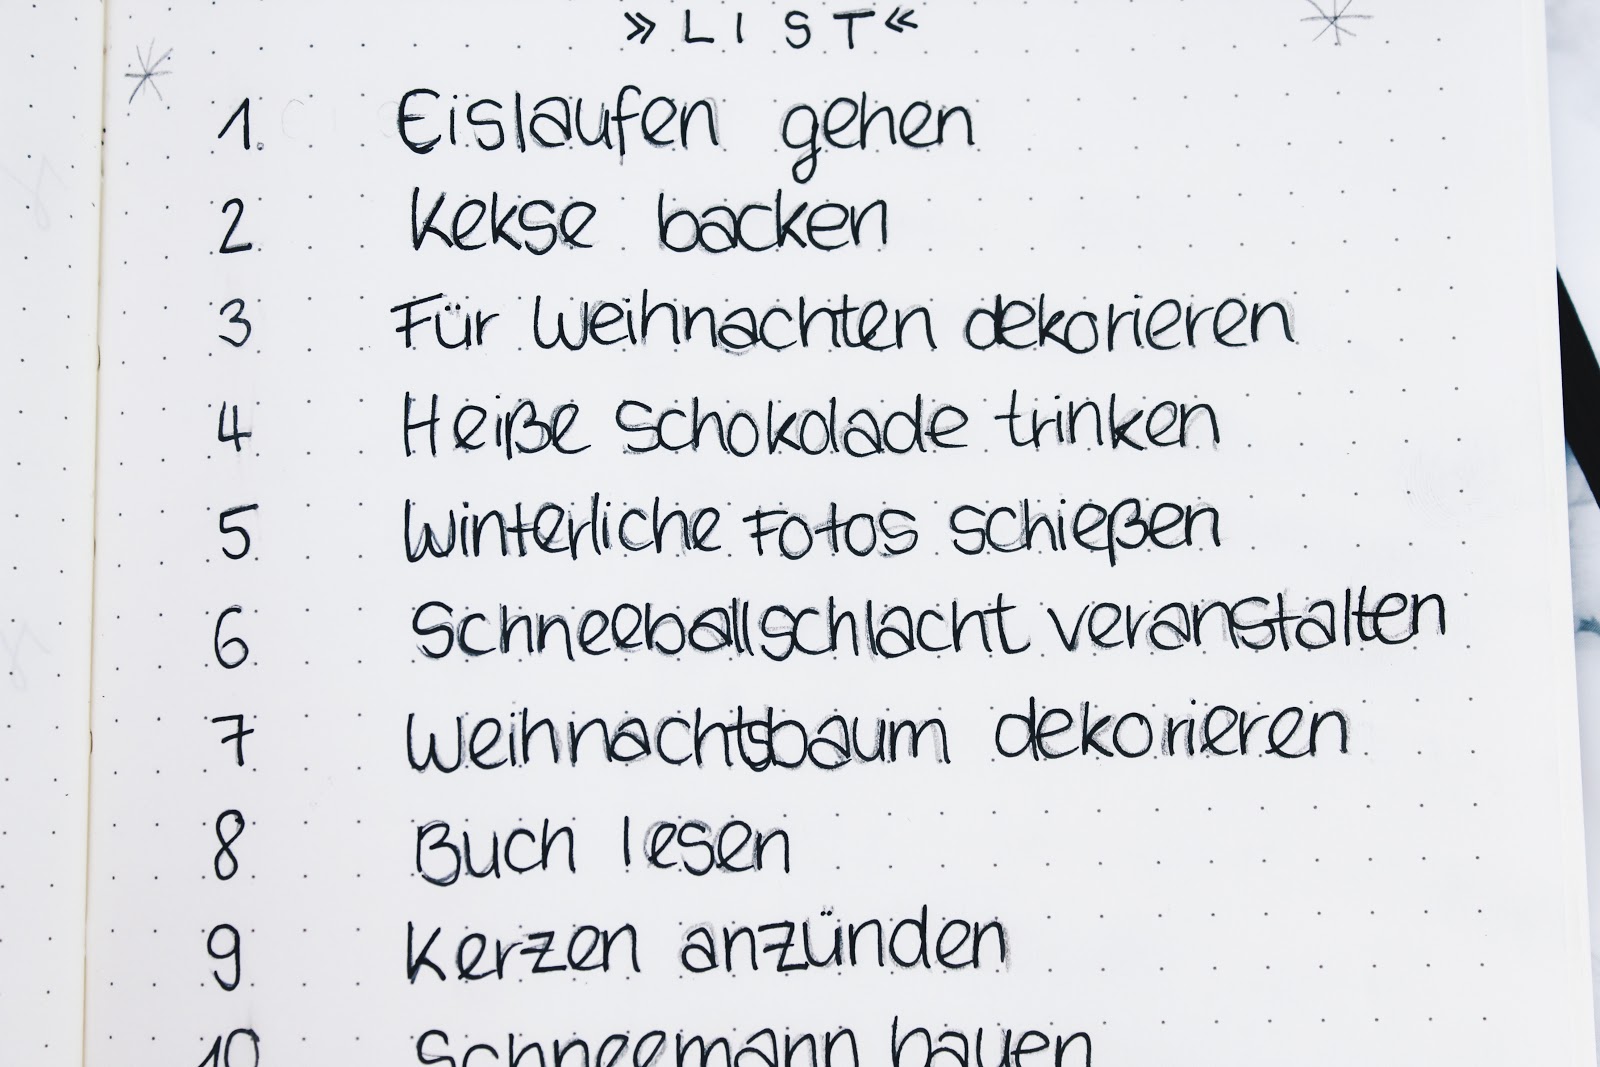 » LIST «
1. Eislaufen gehen
2 Kekse backen
3 Für Weihnachten dekorieren
4 Heiße Schokolade trinken
5 Winterliche Fotos schießen
6 Schneeballschlacht veranstalten
7 Weihnachtsbaum dekorieren
8 Buch lesen
9 Kerzen anzünden
10 Schneemann bauen